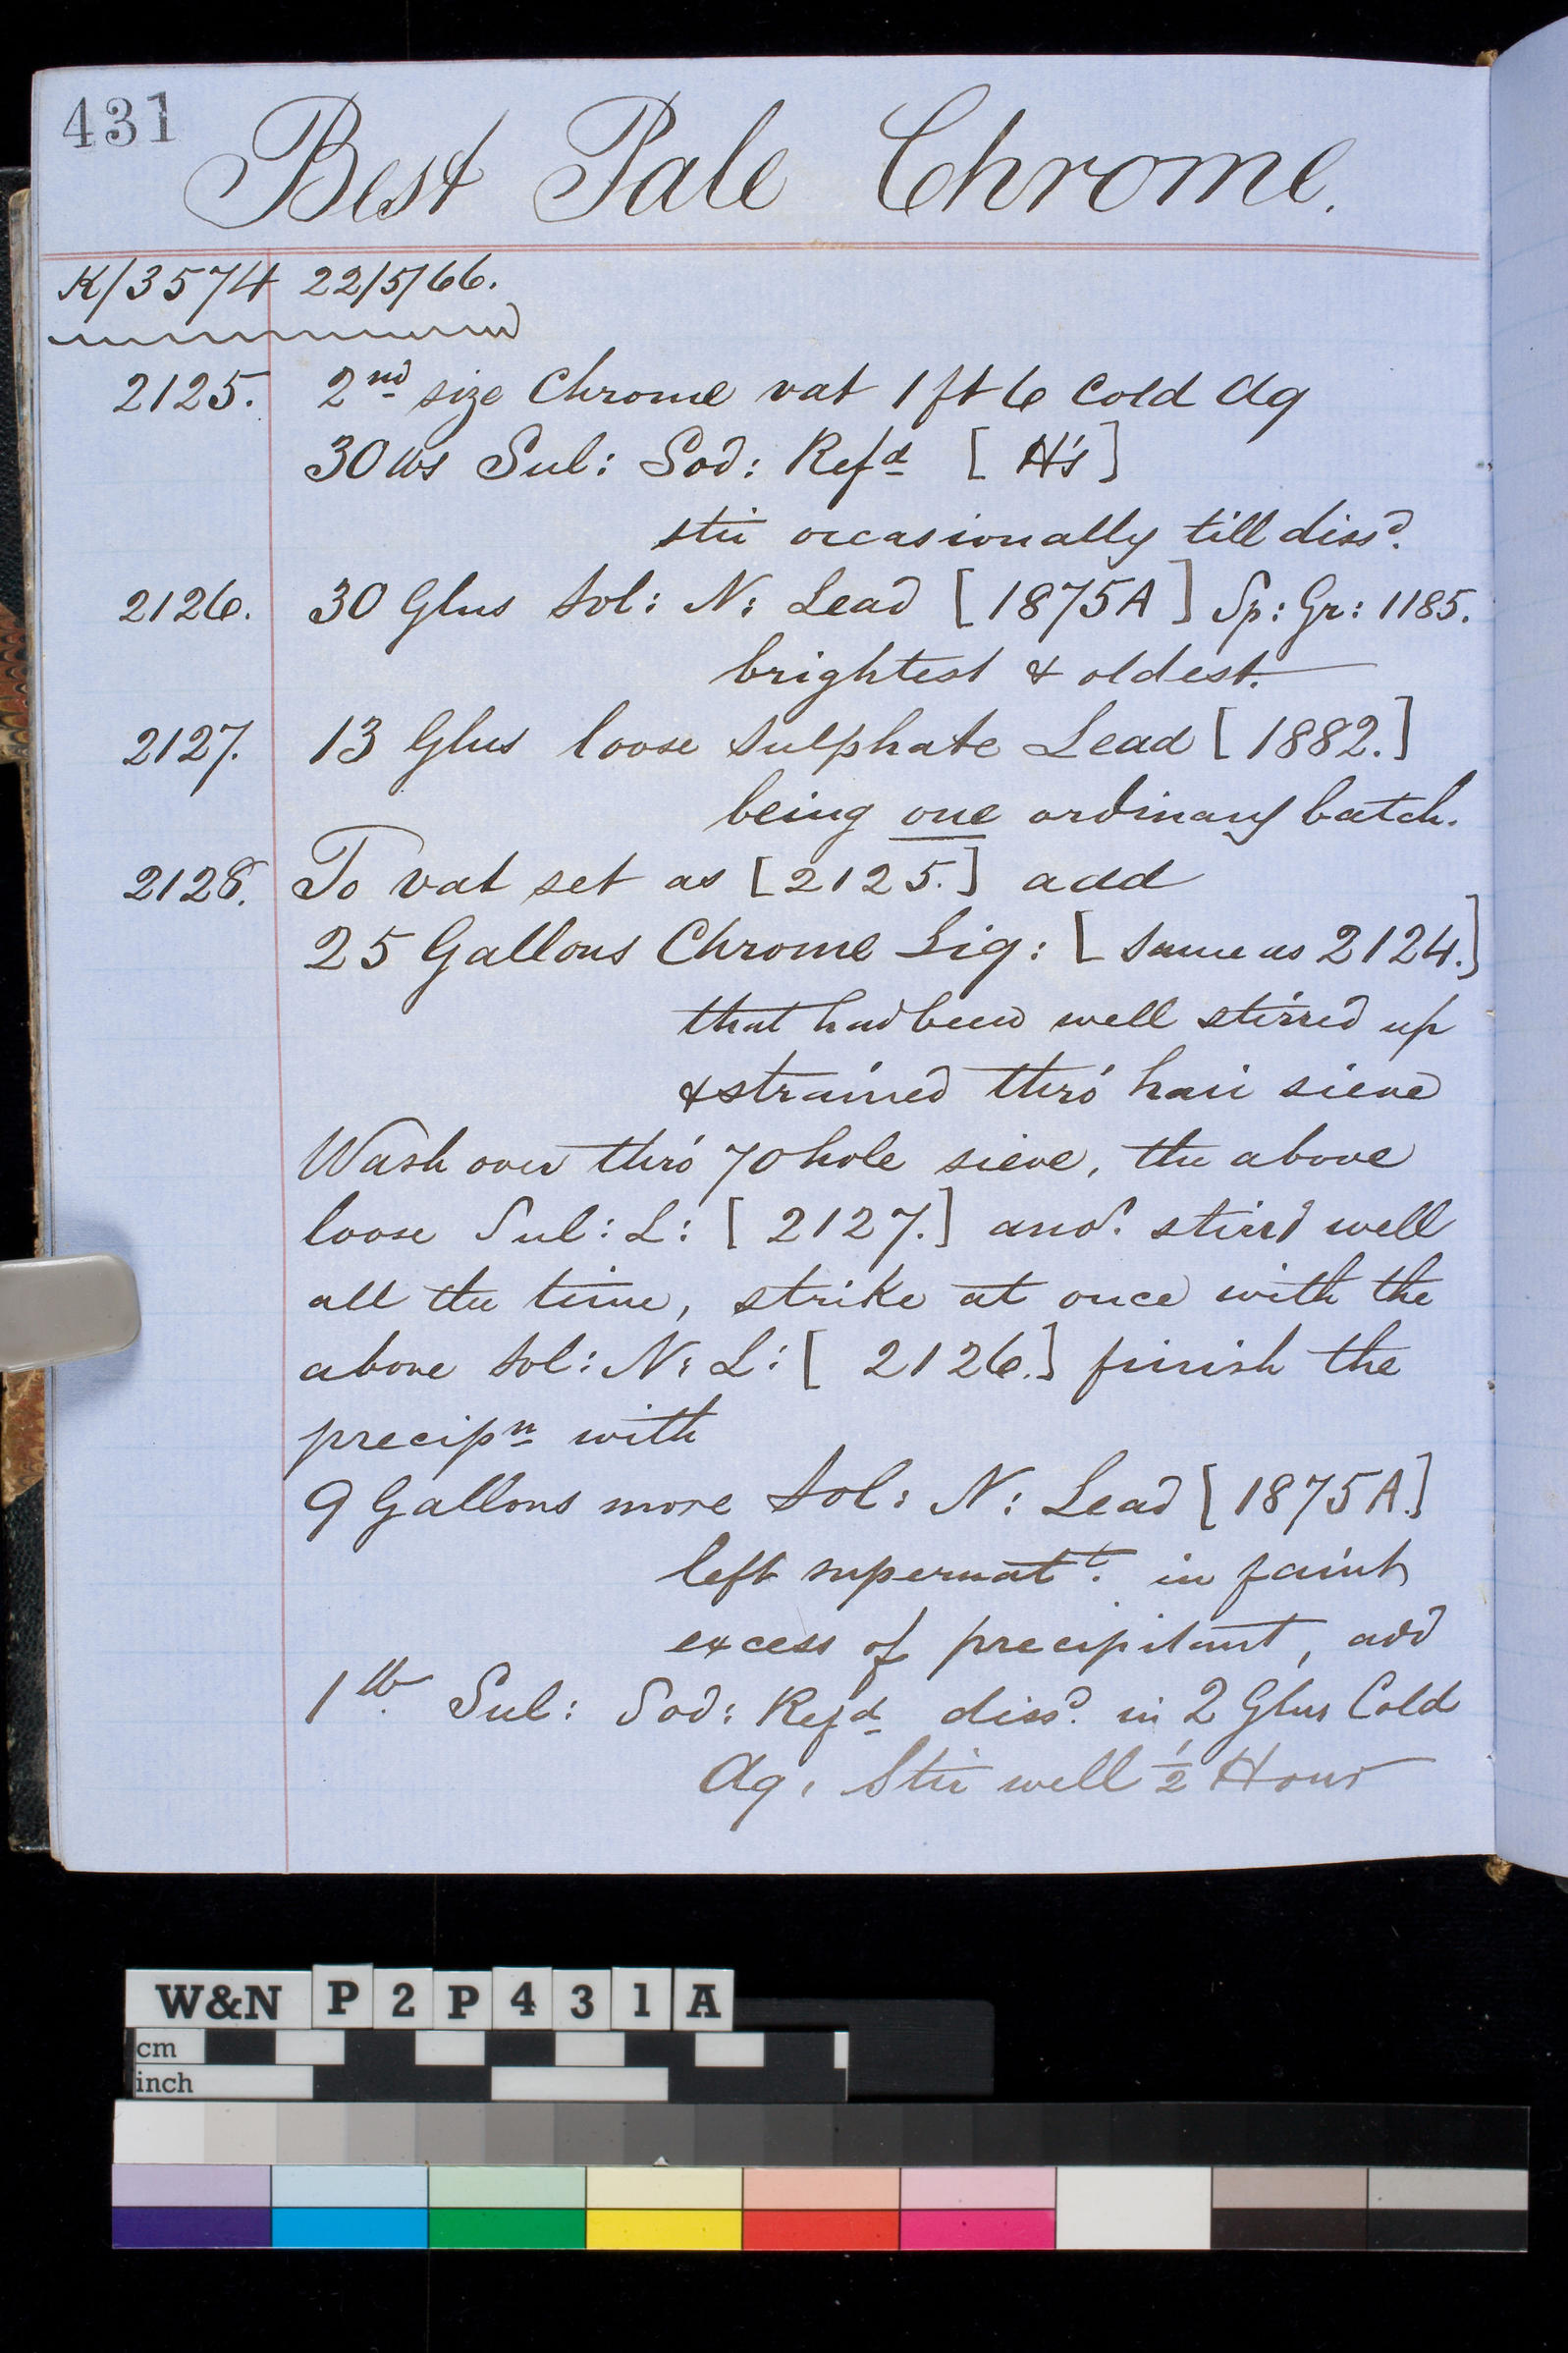 431
Best Pale Chrome.
K/3574 22/5/66.
2125. 2nd size Chrome vat 1 ft 6 Cold Aq
30 lbs Sul: Sod: Refd [H's]
stir occasionally till dissd.
2126. 30 Glns Sol: N: Lead [1875A] Sp: Gr: 1185.
brightest & oldest.
2127. 13 Glns loose Sulphate Lead [1882.]
being one ordinary batch.
2128. To vat set as [2125.] add
25 Gallons Chrome Liq: [Same as 2124.]
that had been well stirred up
& strained thro' hair sieve
Wash over thro' 70 hole sieve, the above
loose Sul: L: [2127.] and. stirrd well
all the time, strike at once with the
above Sol: N: L: [2126.] finish the
precipn with
9 Gallons more Sol: N: Lead [1875A.]
left supernatt. in faint
excess of precipitant, add
1 lb. Sul: Sod: Refd dissd. in 2 Glns Cold
Aq, Stir well 1/2 Hour
W&N P2P431A
cm
inch